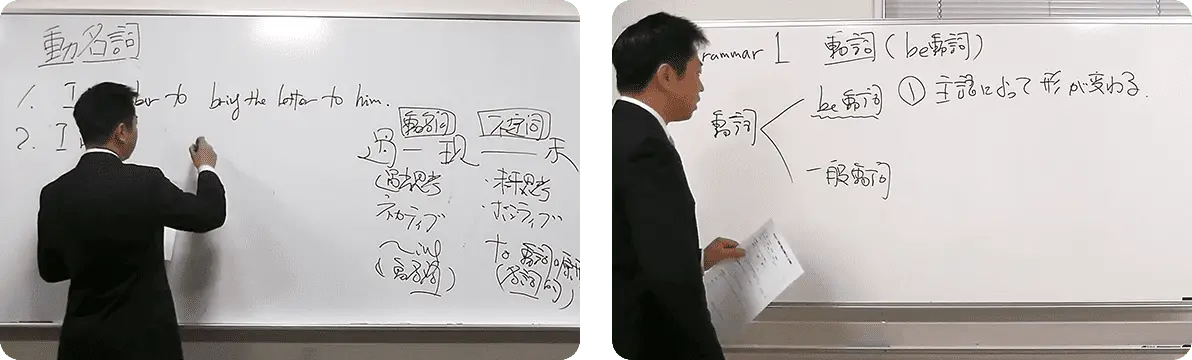 動名詞
1. I to bring the letter to him.
2. I
動名詞 不定詞
過 — 現 — 未
過去思考 ・未来思考
ネガティブ ・ポジティブ
~ing to 動詞の原形
(動名詞) (名詞的)
rammar 1 動詞(be動詞)
動詞
be動詞 ① 主語によって形が変わる.
一般動詞